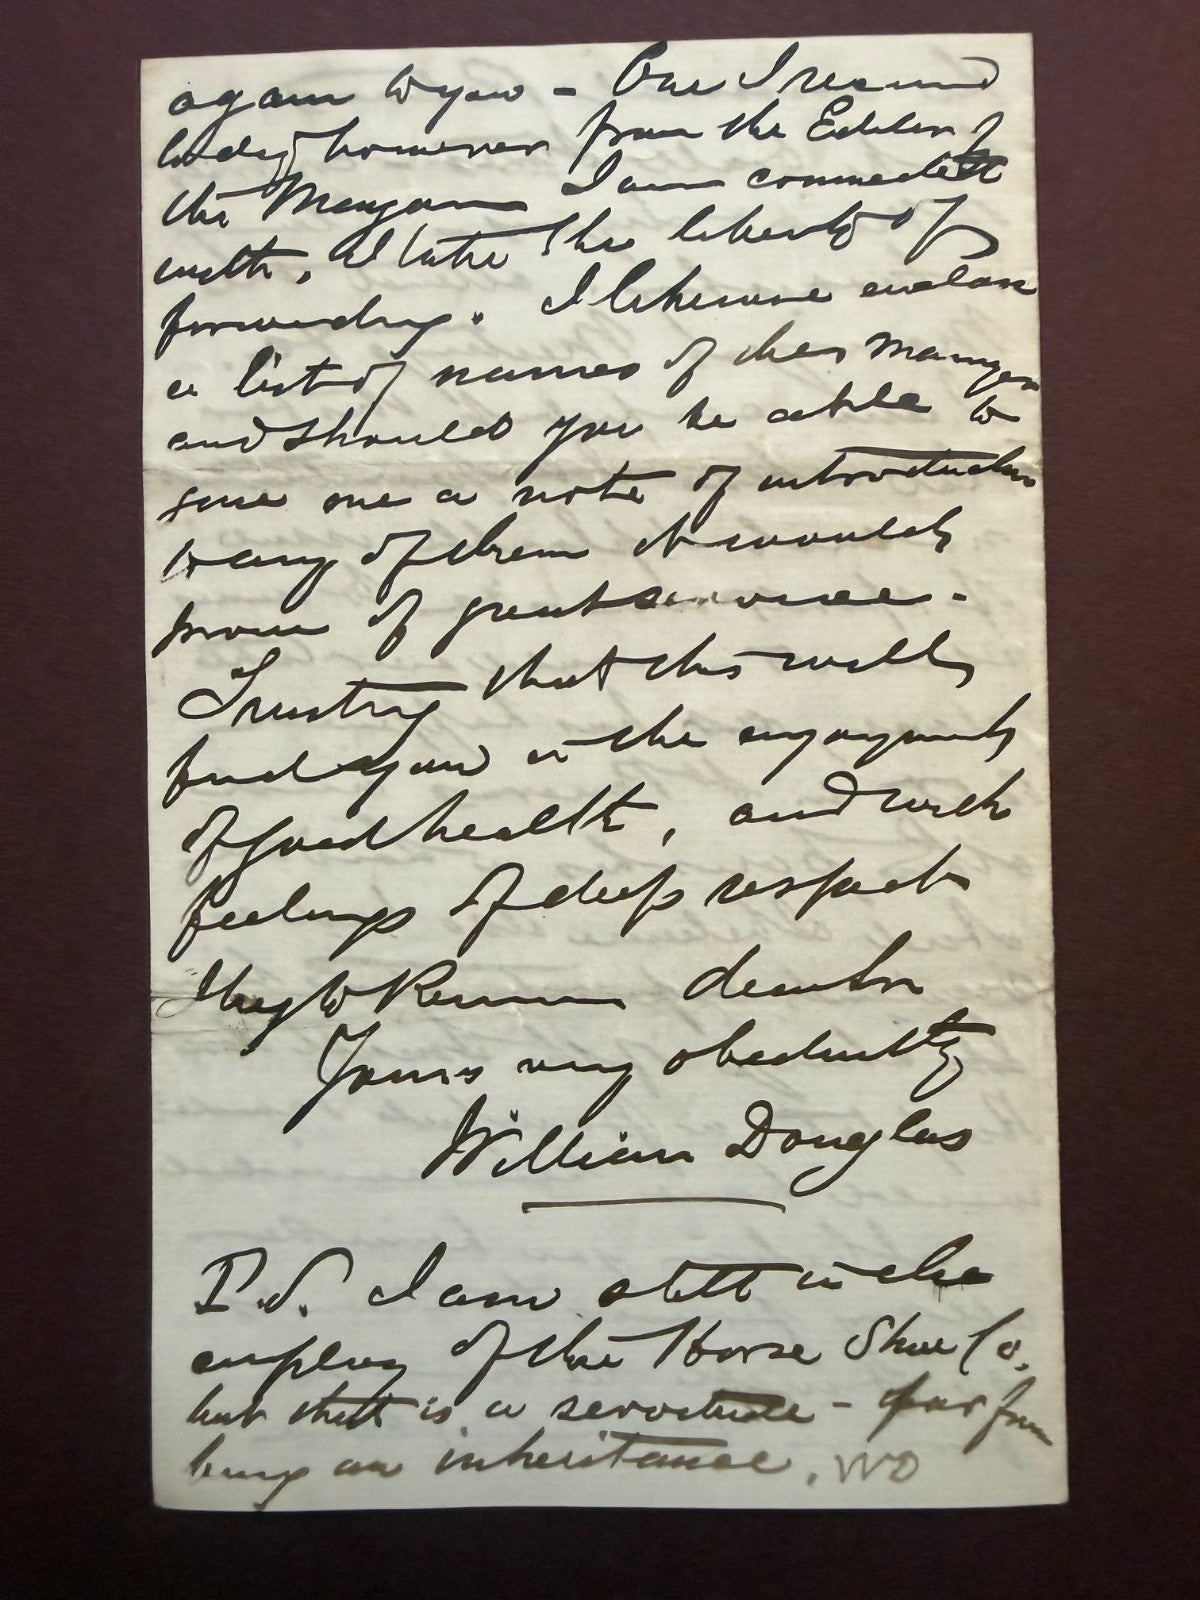 again to you - One I received
today however from the Editor of
the Magazine I am connected
with, I take the liberty of
forwarding. I likewise enclose
a list of names of the
and should you be able to
give me a note of introduction
to any of them it would
prove of great service -
Trusting that this will
find you in the enjoyment
of good health, and with
feelings of deep respect
I beg to Remain dear Sir
Yours very obediently
William Douglas
P.S. I am still in the
employ of the Horse Shoe Co.
but still is a servitude - far from
being an inheritance. WD